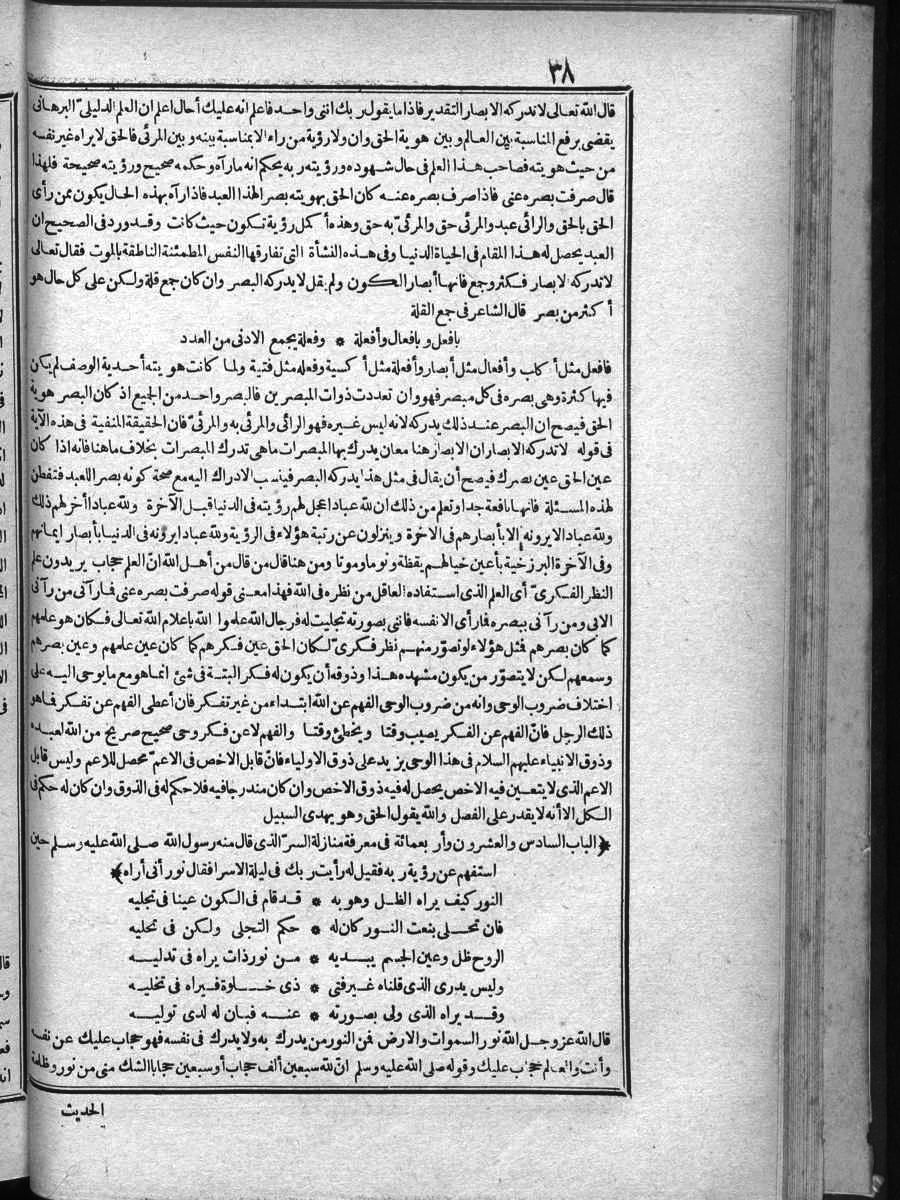 ٣٨
قال الله تعالى لا تدركه الابصار التقدير فاذا ما يقول ربك اننى واحد فاعلم انه عليك أحال اعلم ان العلم الدليلىّ البرهانى
يقضى برفع المناسبة بين العالم وبين هوية الحق وان ولا رؤية من راء الا بمناسبة بينه وبين المرئى فالحق لا يراه غير نفسه
من حيث هويته فصاحب هذا العلم فى حال شهوده ورؤيته ربه بحكم انه ما رآه وحكمه صحيح ورؤيته صحيحة فلهذا
قال صرفت بصره عنى فاذا صرف بصره عنه كان الحق بهويته بصر الهذا العبد فاذا رآه بهذه الحال يكون بمن رأى
الحق بالحق والرائى عبد والمرئى حق والمرئىّ به حق وهذه أكمل رؤية تكون حيث كانت وقد ورد فى الصحيح ان
العبد يحصل له هذا المقام فى الحياة الدنيا وفى هذه النشأة التى تفارقها النفس المطمئنة الناطقة بالموت فقال تعالى
لا تدركه لابصار فكثر وجمع فانها أبصار الكون ولم يقل لا يدركه البصر وان كان جمع قلة ولكن على كل حال هو
أكثر من بصر قال الشاعر فى جمع القلة
بافعل وبافعال وأفعلة * وفعلة يجمع الادنى من العدد
فافعل مثل أكاب وأفعال مثل أبصار وأفعلة مثل أكسية وفعله مثل فتية ولما كانت هويته أحدية الوصف لم يكن
فيها كثرة وهى بصره فى كل مبصر فهو وان تعددت ذوات المبصرين فالبصر واحد من الجميع اذ كان البصر هوية
الحق فيصح ان البصر عند ذلك يدركه لانه ليس غيره فهو الرائى والمرئى به والمرئىّ فان الحقيقة المنفية فى هذه الآية
فى قوله لا تدركه الابصار ان الابصار هنا معان يدرك بها المبصرات ما هى تدرك المبصرات بخلاف ما هنا فانه اذا كان
عين الحق عين بصرك فيصح أن يقال فى مثل هذا يدركه البصر فينسب الادراك اليه مع صحة كونه بصر اللعبد فتفطن
لهذه المسئلة فانها نافعة جدا وتعلم من ذلك ان لله عبادا عجل لهم رؤيته فى الدنيا قبل الآخرة ولله عبادا أخر لهم ذلك
ولله عباد لا يرونه إلا بأبصارهم فى الآخرة وينزلون عن رتبة هؤلاء فى الرؤية ولله عباد يرونه فى الدنيا بأبصار ايمانهم
وفى الآخرة البرزخية بأعين خيالهم يقظة ونوما وموتا ومن هنا قال من قال من أهل الله انّ العلم حجاب يريدون علم
النظر الفكرىّ أى العلم الذى استفاده العاقل من نظره فى الله فهذا معنى قوله صرفت بصره عنى فما رآنى من رآنى
الا بى ومن رآنى ببصره فما رأى الا نفسه فانى بصورته تجليت له فرجال الله علموا الله باعلام الله تعالى فكان هو علمهم
كما كان بصرهم فمثل هؤلاء لو تصوّر منهم نظر فكرىّ لكان الحق عين فكرهم كما كان عين علمهم وعين بصرهم
وسمعهم لكن لا يتصوّر من يكون مشهده هذا وذوقه أن يكون له فكر البتة فى شئ انما هو مع ما يوحى اليه على
اختلاف ضروب الوحى وانه من ضروب الوحى الفهم عن الله ابتداء من غير تفكر فان أعطى الفهم عن تفكر فما هو
ذلك الرجل فانّ الفهم عن الفكر يصيب وقتا ويخطئ وقتا والفهم لا عن فكر وحى صحيح صريح من الله لعبده
وذوق الانبياء عليهم السلام فى هذا الوحى يزيد على ذوق الاولياء فانّ قابل الاخص فى الاعمّ محصل للاعم وليس قابل
الاعم الذى لا يتعين فيه الاخص يحصل له فيه ذوق الاخص وان كان مندرجا فيه فلا حكم له فى الذوق وان كان له حكم فى
الكل الا أنه لا يقدر على الفصل والله يقول الحق وهو يهدى السبيل
﴿الباب السادس والعشرون وأربعمائة فى معرفة منازلة السرّ الذى قال منه رسول الله صلى الله عليه وسلم حين
استفهم عن رؤية ربه فقيل له رأيت ربك فى ليلة الاسرا فقال نور أنى أراه﴾
النور كيف يراه الظل وهو به * قد قام فى الكون عينا فى تجليه
فان تحلى بنعت النور كان له * حكم التجلى ولكن فى تحليه
الروح ظل وعين الجسم يبديه * من نور ذات يراه فى تدليه
وليس يدرى الذى قلناه غير فتى * ذى خلوة فيراه فى تخليه
وقد يراه الذى ولى بصورته * عنه فبان له لدى توليه
قال الله عز وجل الله نور السموات والارض فمن النور من يدرك به ولا يدرك فى نفسه فهو حجاب عليك عن نفسه
وأنت والعالم حجاب عليك وقوله صلى الله عليه وسلم ان لله سبعين ألف حجاب أو سبعين حجابا الشك منى من نور وظلمة
الحديث